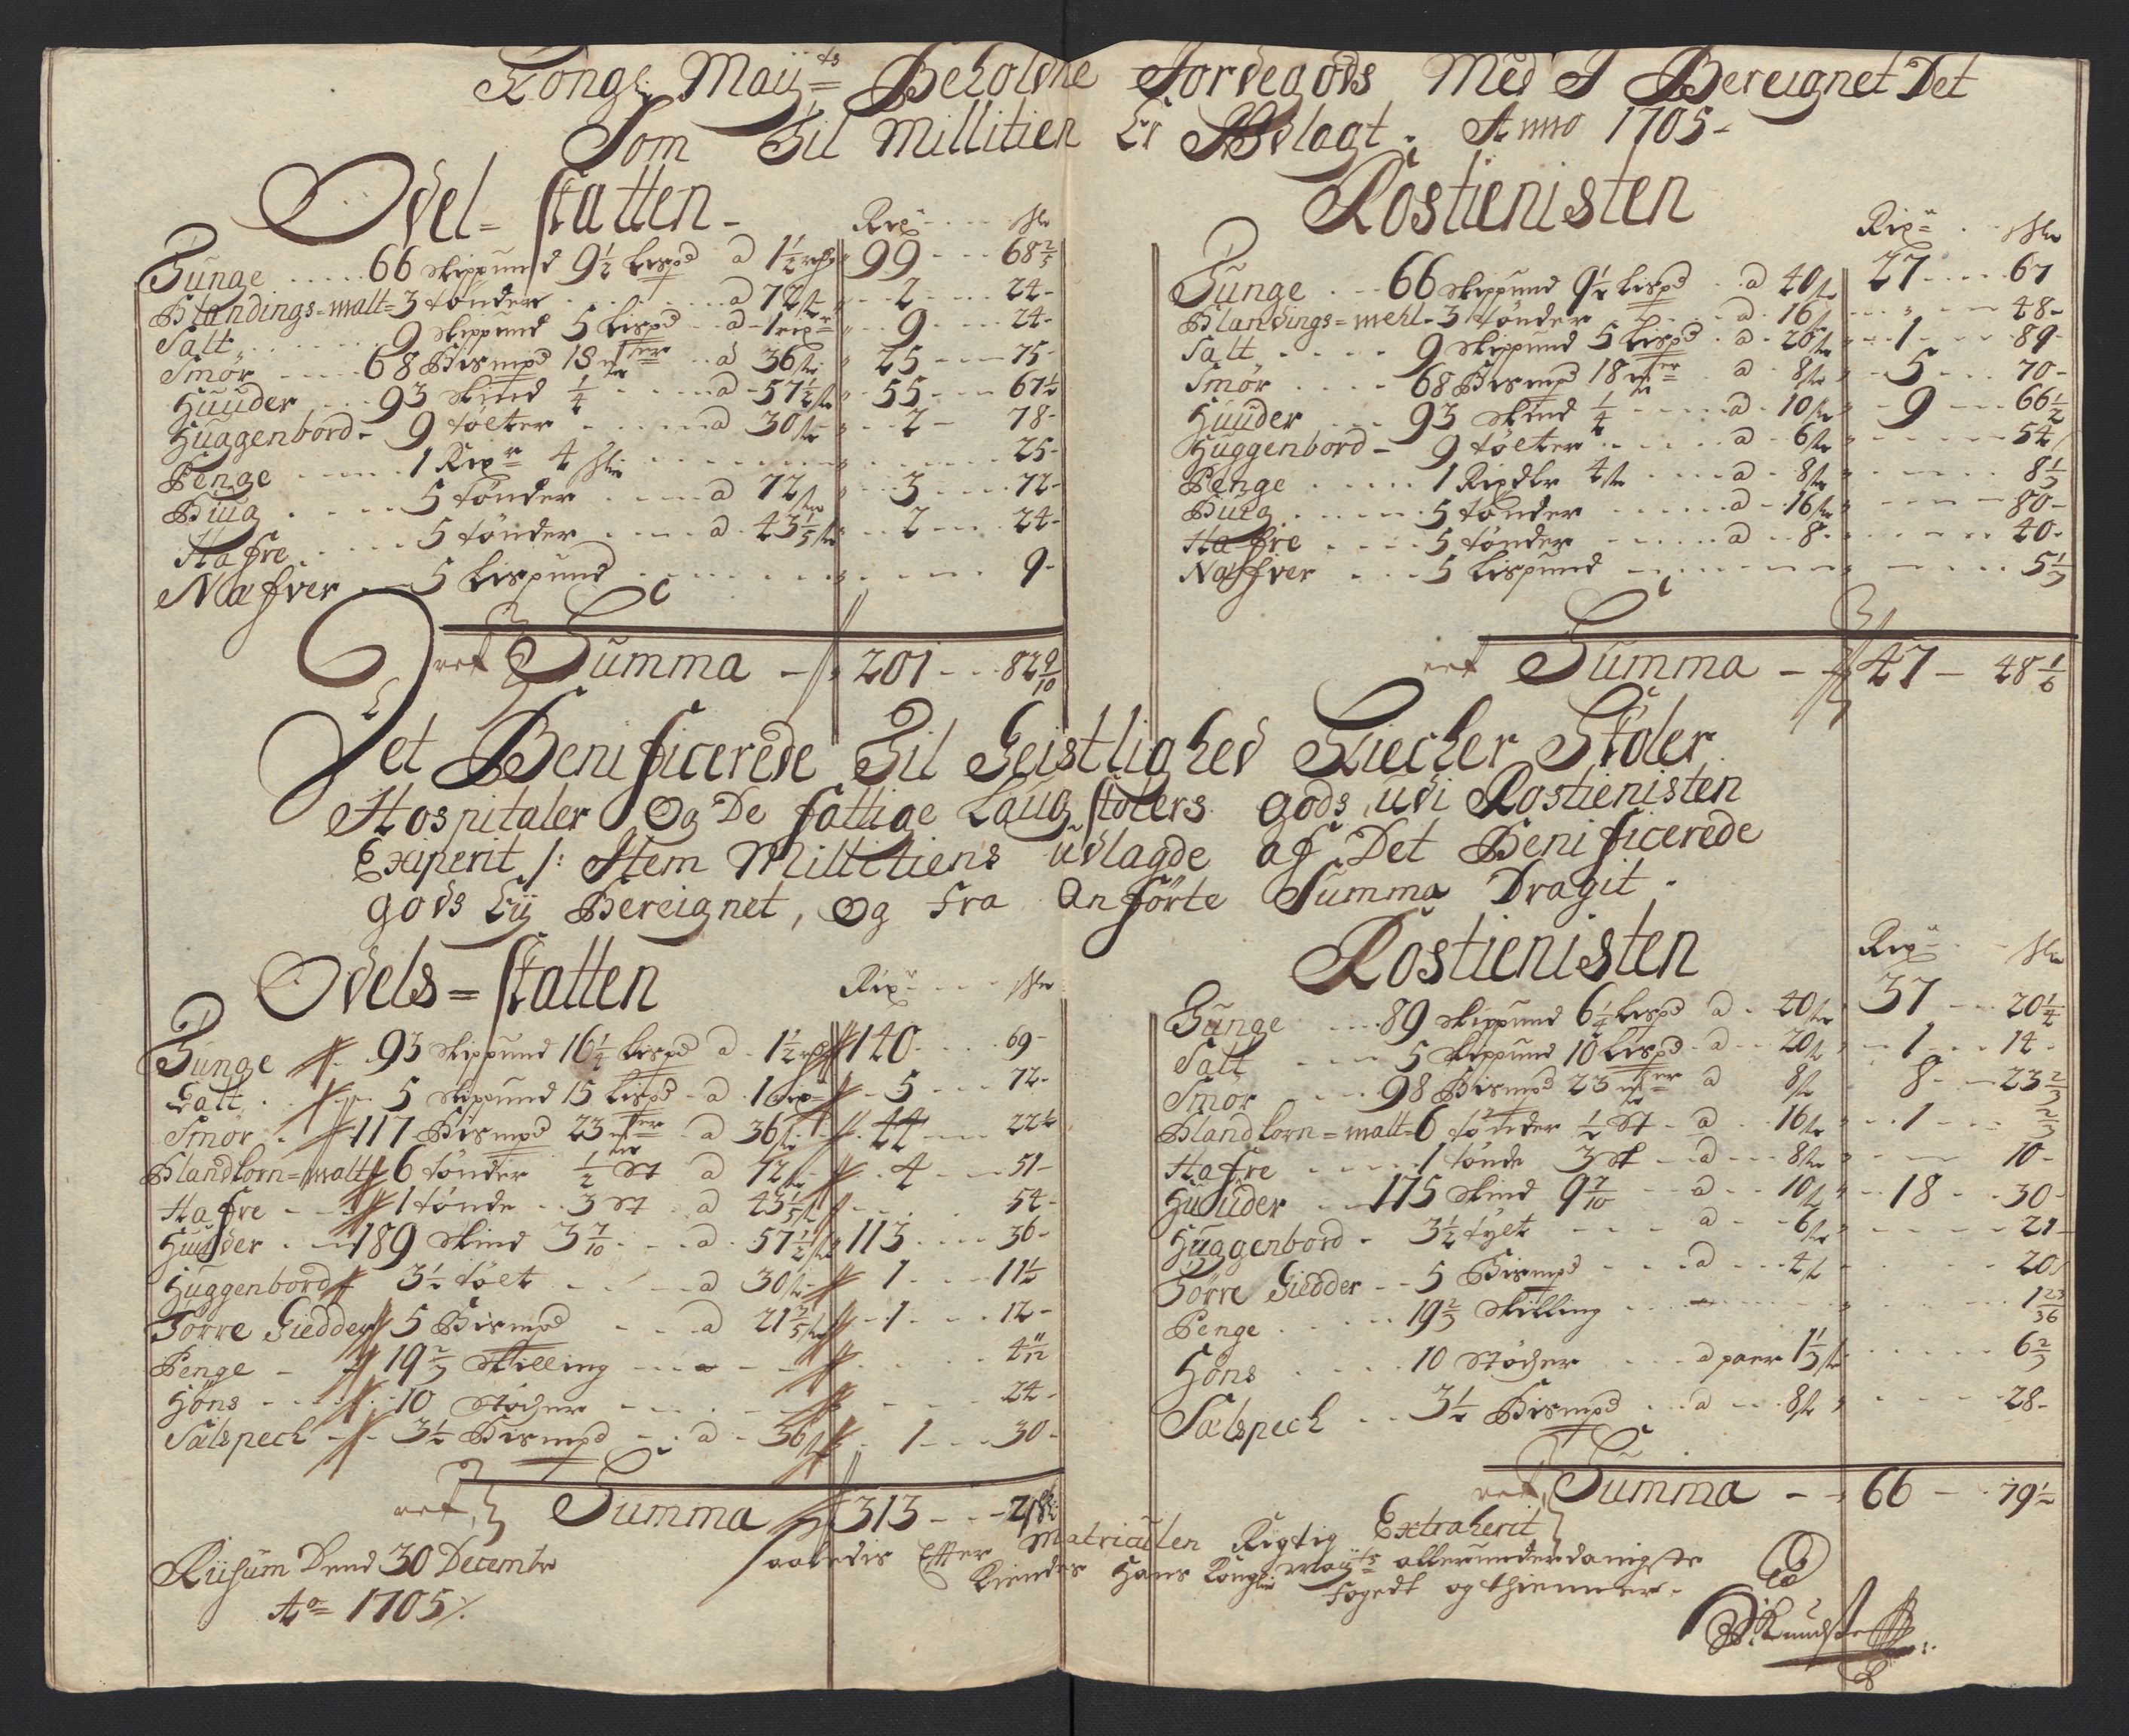 Kongl Mayts Beholdne Jordegods Med I Bereignet Det
Som Til Millitien Er Udlagt. Anno 1705-
Odel-skatten-
Rixr skr
Tunge 66 skippund 9½ Lispd a 1½ rdr 99 68 2/5
Blandings-malt 3 tønder a 72 skr 2 24-
Salt 9 skippund 5 Lispd a 1 rixr 9 24-
Smör 68 Bismpd 18 mker a 36 skr 25 75-
Huuder 93 skind ¼ a 57½ skr 55 67½
Huggenbord- 9 tølter a 30 skr 2 78-
Penge 1 Rixr 4 skr 25-
Biug 5 tønder a 72 skr 3 72-
Hafre 5 tønder a 43 1/5 skr 2 24-
Næfver 5 Lispund 9-
ret Summa 201 82 9/10
Rostienisten
Rixr skr
Tunge 66 skippund 9½ Lispd a 40 skr 27 67
Blandings-mehl- 3 tønder a 16 48-
Salt 9 skippund 5 Lispd a 20 skr 1 89-
Smör 68 Bismpd 18 mker a 8 skr 5 70-
Huuder 93 skind ¼ a 10 skr 9 66½
Huggenbord- 9 tølter a 6 skr 54
Penge 1 Rixdlr 4 skr a 8 skr 8 1/3
Buig 5 tønder a 16 skr 80-
Hafre 5 tønder a 8 40-
Næfver 5 Lispund 5 1/3
ret Summa 47 48 1/6
Det Benificerede Til Geistlighed Kiecher Stoler
Hospitaler Og De fattige Laugstolers gods, udi Rostienisten
Exiperit /: Item Millitiens udlagde af Det Benificerede
gods Eij Bereignet, Og Fra Anförte Summa Dragit.
Odels-skatten
Rixr skr
Tunge 93 skippund 16¼ Lispd a 1½ rdr 140 69-
Salt 5 skippund 15 Lispd a 1 Rixr 5 72-
Smör 117 Bismpd 23 mker a 36 skr 44 22½
Blandkorn-malt 6 tønder ½ st a 72 skr 4 51-
Hafre 1 tønde 3 st a 43 1/5 skr 54-
Huuder 189 skind 3 7/10 a 57½ skr 113 36-
Huggenbord 3½ tølt a 30 skr 1 11½
Törre Giedder 5 Bismpd a 21 2/5 skr 1 12-
Penge 19 2/3 skilling 4 11/12
Höns 10 støcher 24-
Sælspech 3½ Bismpd a 36 skr 1 30-
ret Summa 313
Rostienisten
Rixr skr
Tunge 89 skippund 6¼ Lispd a 40 skr 37 20¼
Salt 5 skippund 10 Lispd a 20 skr 1 14-
Smör 98 Bismpd 23 mker a 8 skr 8 23 2/3
Blandkorn-malt- 6 tønder ½ st a 16 skr 1 2/3
Hafre 1 tønde 3 st a 8 skr 10-
Huuder 175 skind 9 7/10 a 10 skr 18 30-
Huggenbord- 3½ tylt a 6 skr 21-
Törre Giedder 5 Bismpd a 4 skr 20
Penge 19 2/3 skilling 1 23/36
Höns 10 støcher a paer 1 1/3 skr 6 2/3
Sælspech 3½ Bismpd a 8 skr 28-
ret Summa 66 79½
Saaledis Efter Matriculen Rigtig Extraherit
Kiendes Hans Kongln Mayts allerunderdanigste
Fogedt og thienner.
Riisum Dend 30 Decembr
Ao 1705 /.